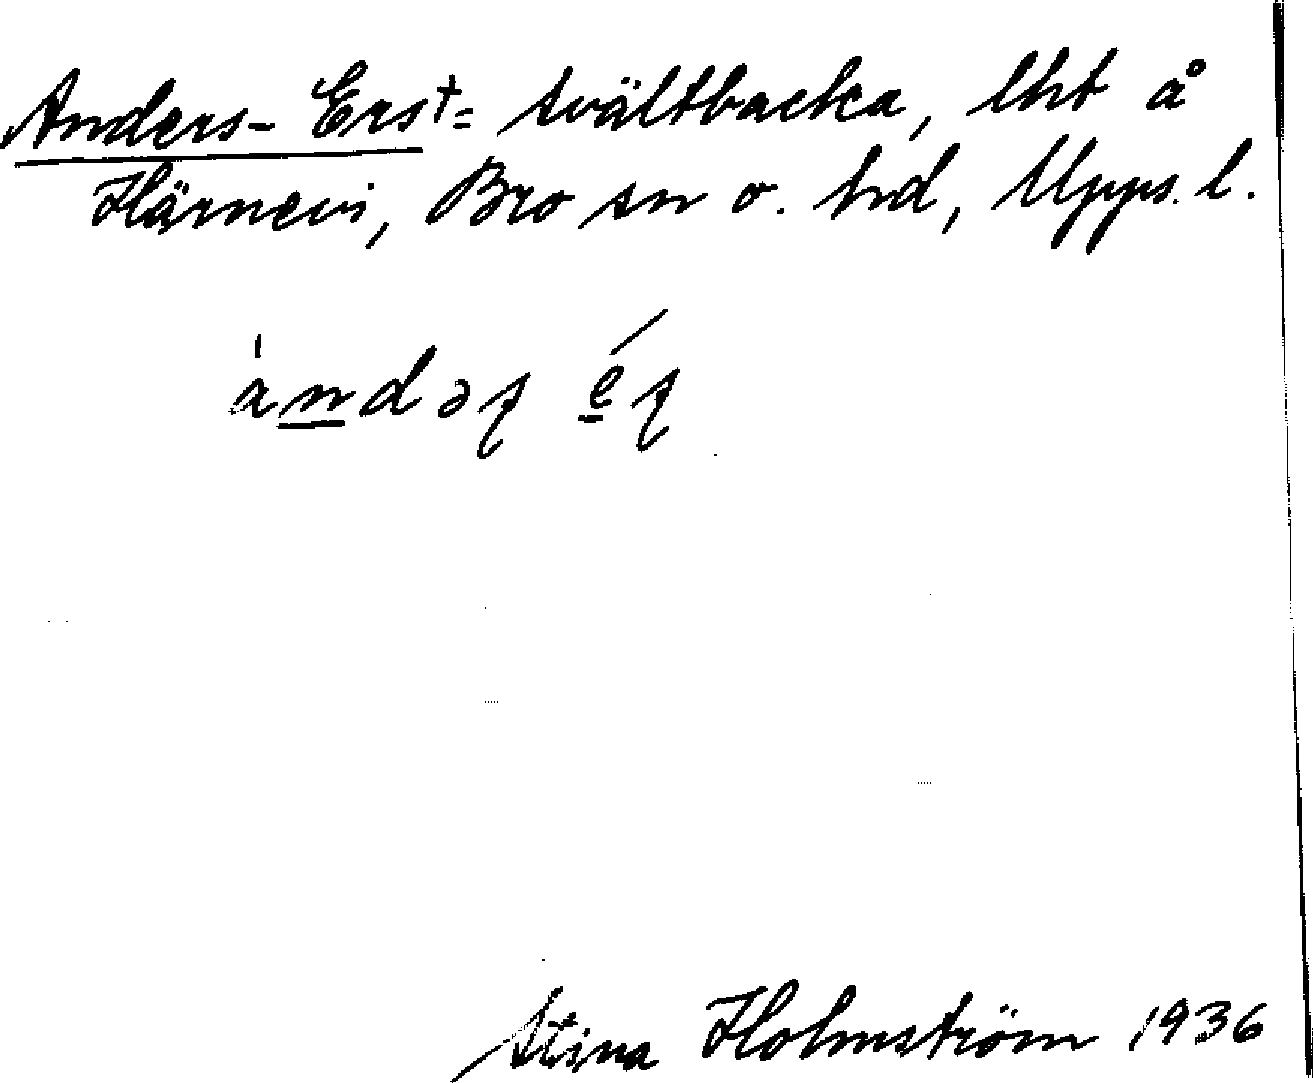 Anders-Ers†= Svältbacka, lht å
Härnevi, Bro sn o. hd, Upps. l.
àndəʂ éʂ
Stina Holmström 1936